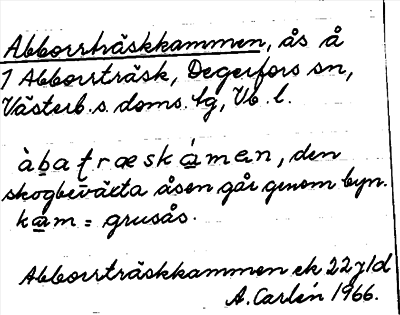 Abborrträskkammen, ås å
1 Abborrträsk, Degerfors sn,
Västerb. s. doms. lg, Vb. l.
àbatræskámen, den
skogbeväxta åsen går genom byn.
kam = grusås.
Abborrträskkammen ek 22 y/d
A. Carlén 1966.